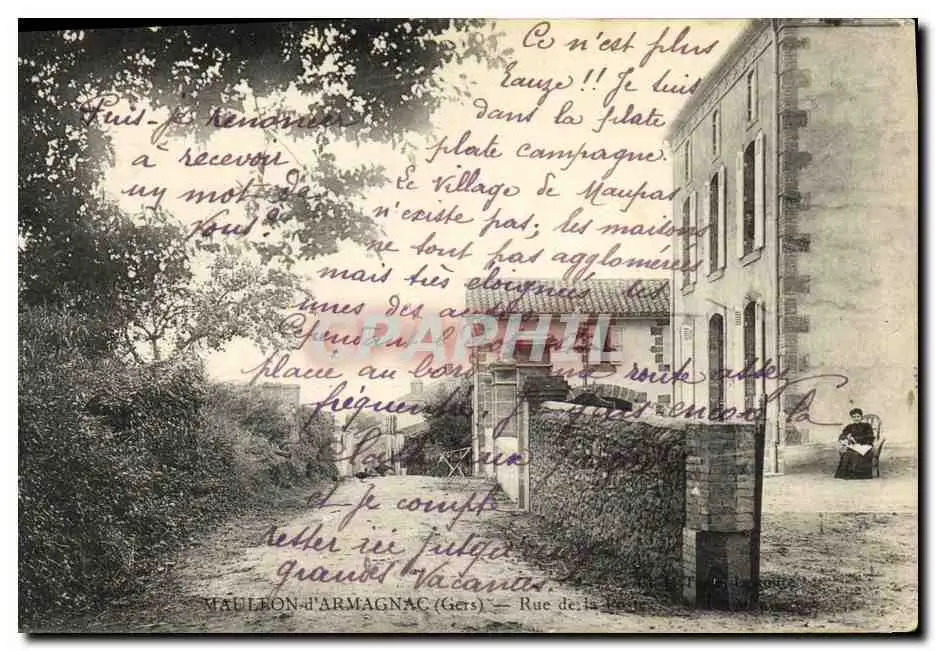 Puis-je renoncer
à recevoir
un mot de
Vous?
Ce n'est plus
Eauze!! Je suis
dans la plate
plate campagne
Le Village de Maupas
n'existe pas; les maisons
ne sont pas agglomérées
mais très éloignées les
unes des autres
Cependant
placée au bord une route assez
fréquentée encore la
Je compte
rester ici jusqu'aux
grandes Vacances
CARAPHIL
MAULÉON-d'ARMAGNAC (Gers) — Rue de la Poste